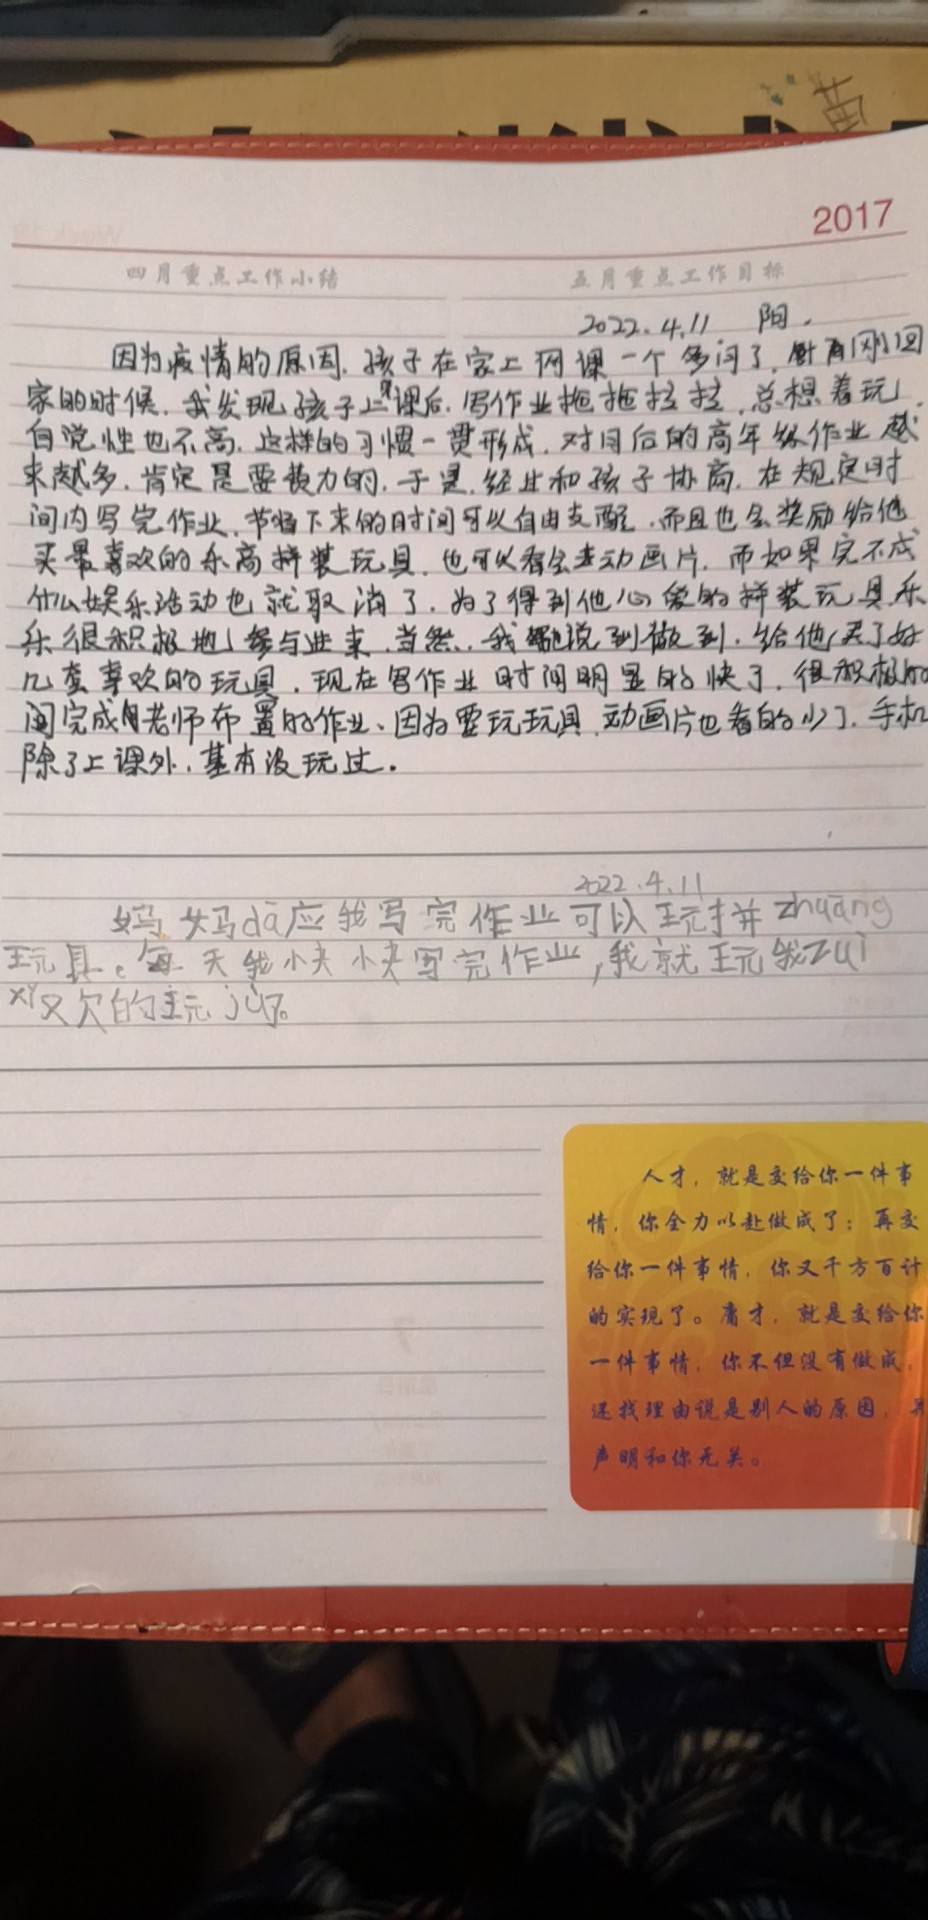 黄
2017
四月重点工作小结 五月重点工作目标
2022.4.11 阳.
因为疫情的原因,孩子在家上网课一个多月了,刚回
家的时候,我发现孩子上课后,写作业拖拖拉拉,总想着玩,
自觉性也不高,这样的习惯一贯形成,对日后的高年级作业越
来越多,肯定是要费力的,于是,经过和孩子协商,在规定时
间内写完作业,节省下来的时间可以自由支配,而且也会奖励给他
买最喜欢的乐高拼装玩具,也可以看会儿动画片,而如果完不成
什么娱乐活动也就取消了,为了得到他心爱的拼装玩具,乐
乐很积极地参与进来,当然,我说到做到,给他买了好
几套喜欢的玩具,现在写作业时间明显的快了,很积极的
完成老师布置的作业、因为要玩玩具,动画片也看的少了,手机
除了上课外,基本没玩过.
2022.4.11
妈妈dā应我写完作业可以玩拼zhuāng
玩具。每天我快快写完作业,我就玩我zuì
xǐ欢的玩jù了。
人才,就是交给你一件事
情,你全力以赴做成了;再交
给你一件事情,你又千方百计
的实现了。庸才,就是交给你
一件事情,你不但没有做成,
还找理由说是别人的原因,并
声明和你无关。